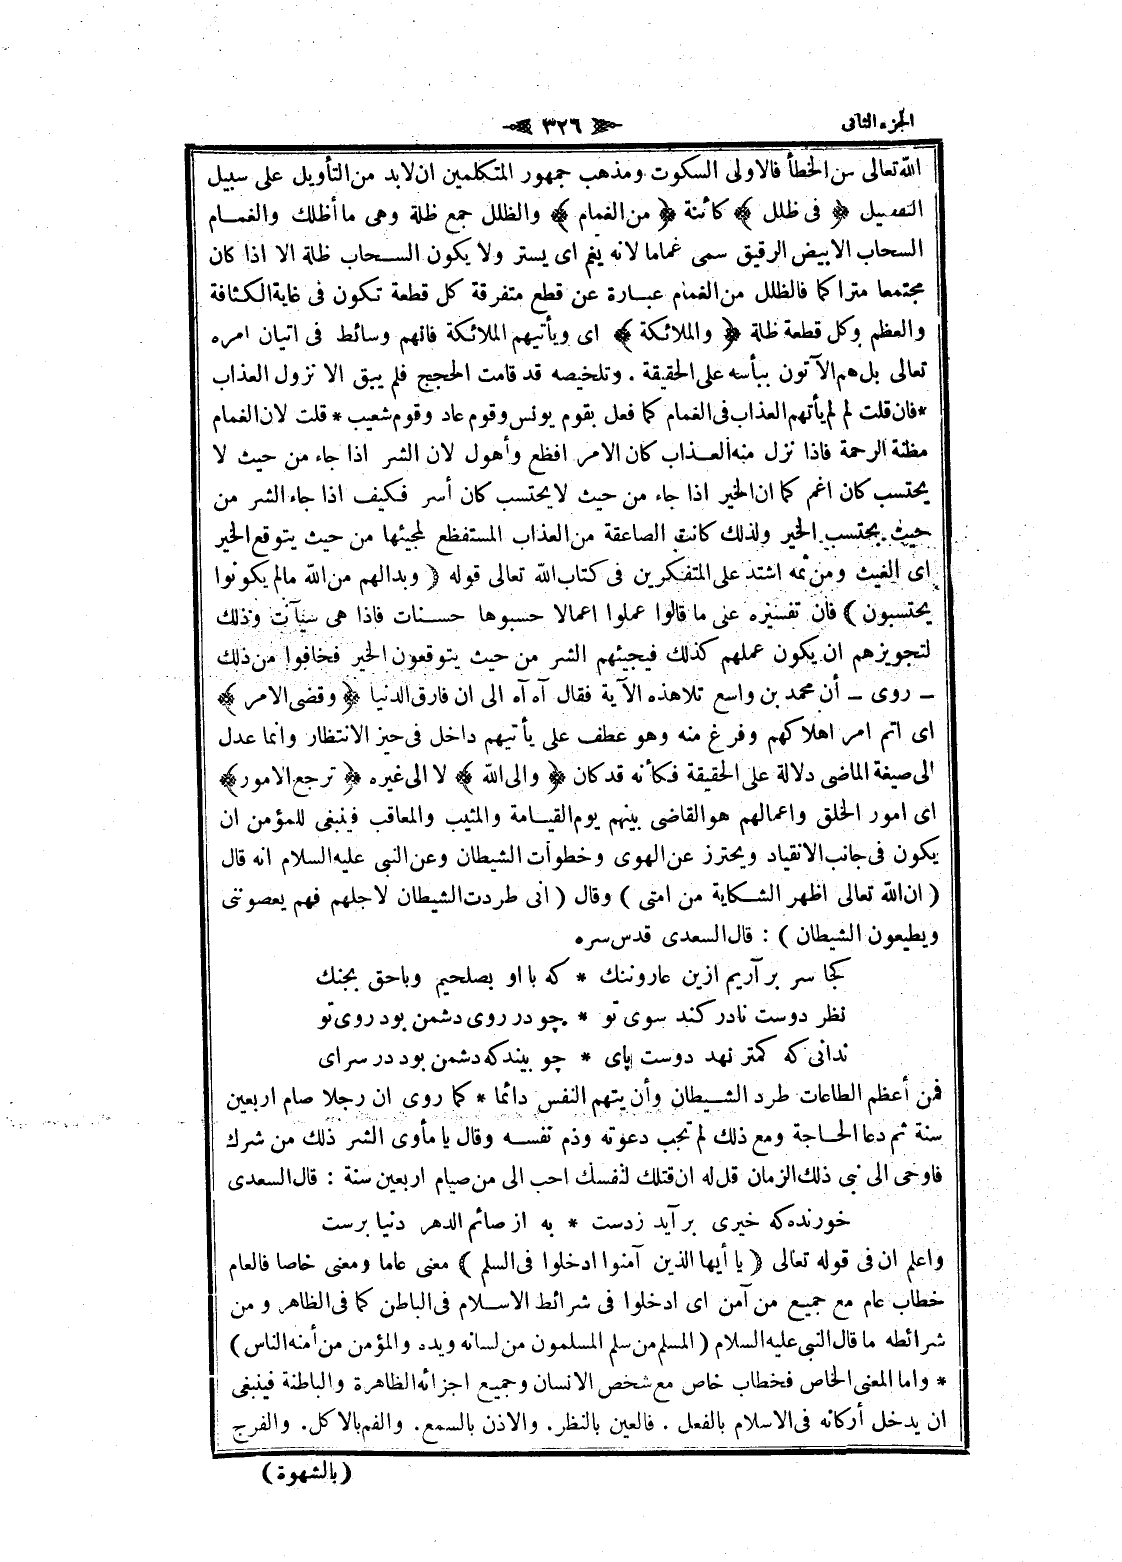 الجزء الثانى
٣٢٦
الله تعالى من الخطأ فالاولى السكوت ومذهب جمهور المتكلمين ان لابد من التأويل على سبيل
التفصيل ﴿ فى ظلل ﴾ كائنة ﴿ من الغمام ﴾ والظلل جمع ظلة وهى ما أظلك والغمام
السحاب الابيض الرقيق سمى غماما لانه يغم اى يستر ولا يكون السحاب ظلة الا اذا كان
مجتمعا متراكما فالظلل من الغمام عبارة عن قطع متفرقة كل قطعة تكون فى غاية الكثافة
والعظم وكل قطعة ظلة ﴿ والملائكة ﴾ اى ويأتيهم الملائكة فانهم وسائط فى اتيان امره
تعالى بل هم الآتون ببأسه على الحقيقة . وتلخيصه قد قامت الحجج فلم يبق الا نزول العذاب
* فان قلت لم لم يأتهم العذاب فى الغمام كما فعل بقوم يونس وقوم عاد وقوم شعيب * قلت لان الغمام
مظنة الرحمة فاذا نزل منه العذاب كان الامر افظع وأهول لان الشر اذا جاء من حيث لا
يحتسب كان اغم كما ان الخير اذا جاء من حيث لا يحتسب كان أسر فكيف اذا جاء الشر من
حيث يحتسب الخير ولذلك كانت الصاعقة من العذاب المستفظع لمجيئها من حيث يتوقع الخير
اى الغيث ومن ثمه اشتد على المتفكرين فى كتاب الله تعالى قوله ( وبدالهم من الله مالم يكونوا
يحتسبون ) فان تفسيره على ما قالوا عملوا اعمالا حسبوها حسنات فاذا هى سيآت وذلك
لتجويزهم ان يكون عملهم كذلك فيجيئهم الشر من حيث يتوقعون الخير فخافوا من ذلك
ـ روى ـ أن محمد بن واسع تلا هذه الآية فقال آه آه الى ان فارق الدنيا ﴿ وقضى الامر ﴾
اى اتم امر اهلاكهم وفرغ منه وهو عطف على يأتيهم داخل فى حيز الانتظار وانما عدل
الى صيغة الماضى دلالة على الحقيقة فكأنه قد كان ﴿ والى الله ﴾ لا الى غيره ﴿ ترجع الامور ﴾
اى امور الخلق واعمالهم هو القاضى بينهم يوم القيامة والمثيب والمعاقب فينبغى للمؤمن ان
يكون فى جانب الانقياد ويحترز عن الهوى وخطوات الشيطان وعن النبى عليه السلام انه قال
( ان الله تعالى اظهر الشكاية من امتى ) وقال ( انى طردت الشيطان لاجلهم فهم يعصوننى
ويطيعون الشيطان ) : قال السعدى قدس سره
كجا سر بر آريم ازين عار وننك * كه با او بصلحيم وباحق بجنك
نظر دوست نادر كند سوى تو * چو در روى دشمن بود روى تو
ندانى كه كمتر نهد دوست پاى * چو بيند كه دشمن بود در سراى
فمن أعظم الطاعات طرد الشيطان وأن يتهم النفس دائما * كما روى ان رجلا صام اربعين
سنة ثم دعا الحاجة ومع ذلك لم تجب دعوته وذم نفسه وقال يا مأوى الشر ذلك من شرك
فاوحى الى نبى ذلك الزمان قل له ان قتلك لنفسك احب الى من صيام اربعين سنة : قال السعدى
خورنده كه خيرى بر آيد زدست * به از صائم الدهر دنيا پرست
واعلم ان فى قوله تعالى ( يا أيها الذين آمنوا ادخلوا فى السلم ) معنى عاما ومعنى خاصا فالعام
خطاب عام مع جميع من آمن اى ادخلوا فى شرائط الاسلام فى الباطن كما فى الظاهر و من
شرائطه ما قال النبى عليه السلام ( المسلم من سلم المسلمون من لسانه ويده والمؤمن من أمنه الناس )
* واما المعنى الخاص فخطاب خاص مع شخص الانسان وجميع اجزائه الظاهرة والباطنة فينبغى
ان يدخل أركانه فى الاسلام بالفعل . فالعين بالنظر. والاذن بالسمع. والفم بالاكل. والفرج
( بالشهوة )